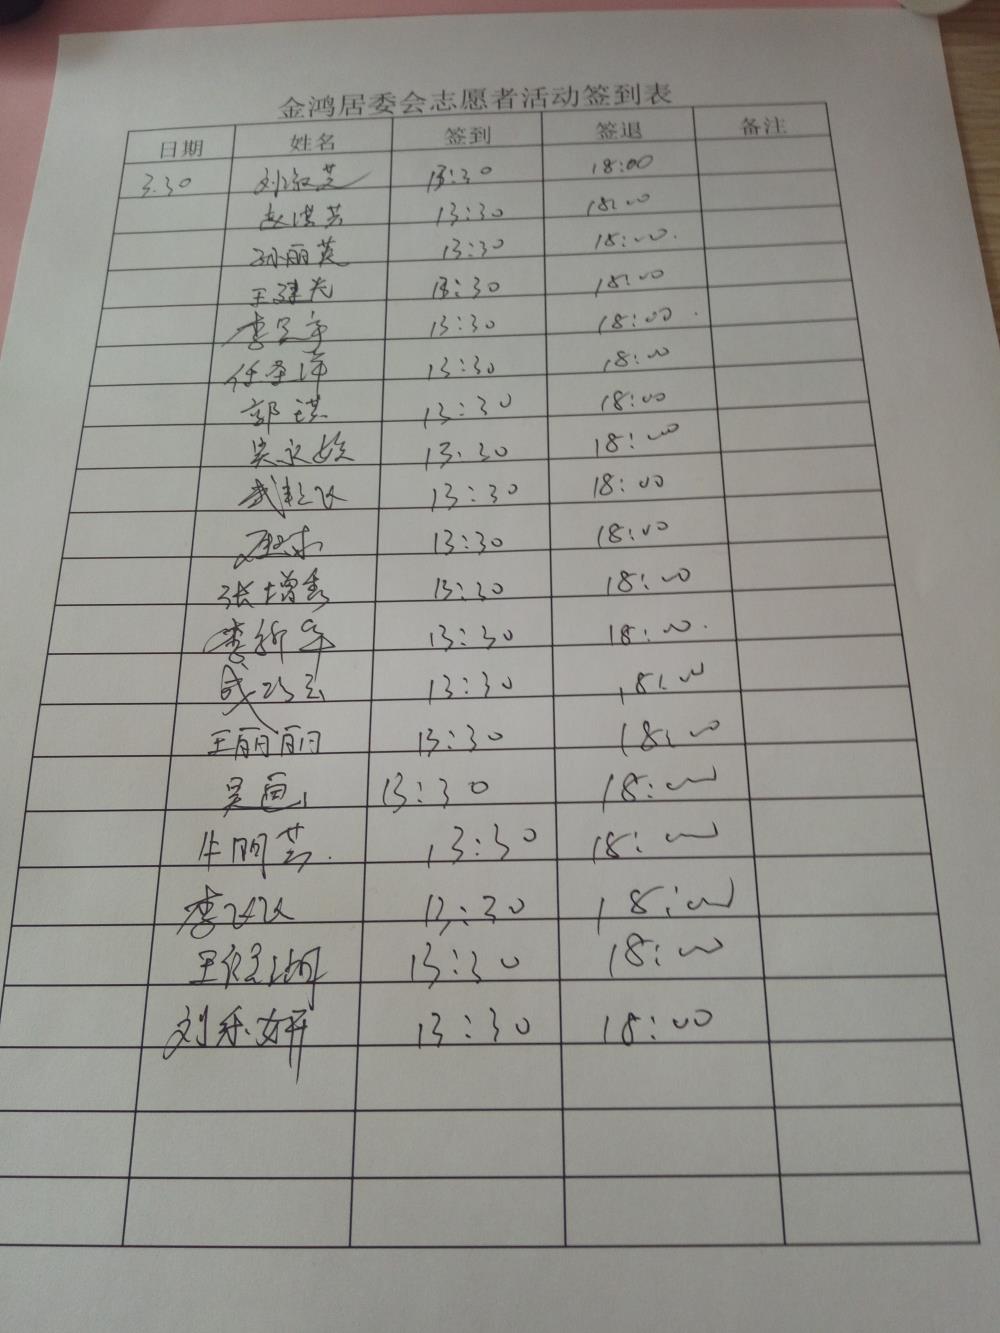 金鸿居委会志愿者活动签到表
日期 姓名 签到 签退 备注
3.30 刘淑芝 13:30 18:00
赵洪芳 13:30 18:00
孙丽英 13:30 18:00
王建光 13:30 18:00
李 13:30 18:00
任 13:30 18:00
郭琪 13:30 18:00
吴永姣 13:30 18:00
武 13:30 18:00
13:30 18:00
张增秀 13:30 18:00
李新华 13:30 18:00
成巧云 13:30 18:00
王丽丽 13:30 18:00
吴 13:30 18:00
牛明芸 13:30 18:00
李 13:30 18:00
王 13:30 18:00
刘乐妍 13:30 18:00